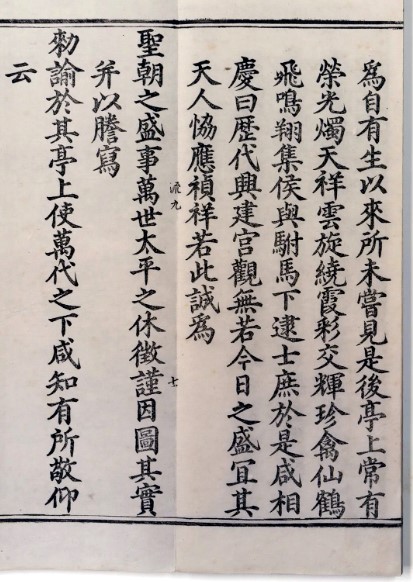 爲自有生以來所未嘗見是後亭上常有
榮光燭天祥雲旋繞霞彩交輝珍禽仙鶴
飛鳴翔集侯與駙馬下逮士庶於是咸相
慶曰歷代興建宮觀無若今日之盛冝其
天人恊應禎祥若此誠爲
流九
七
聖朝之盛事萬世太平之休徵謹因圖其實
并以謄寫
勑諭於其亭上使萬代之下咸知有所敬仰
云